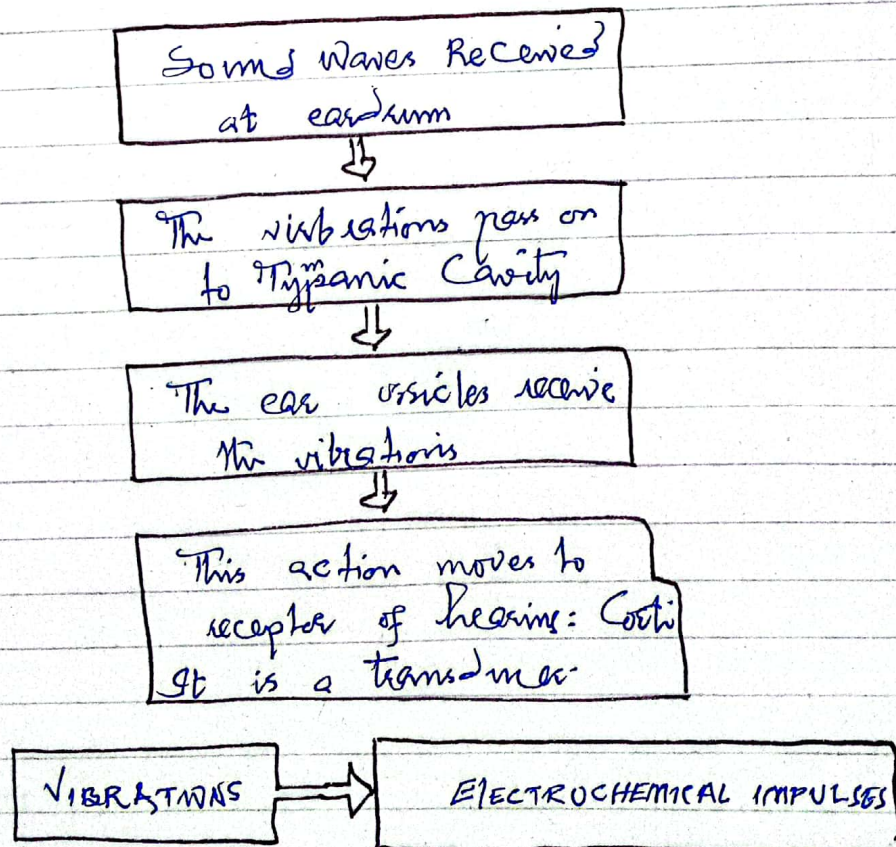 Sound Waves Received
at eardrum
The vibrations pass on
to Tympanic Cavity
The ear ossicles receive
the vibrations
This action moves to
receptor of hearing: Corti
It is a transducer.
VIBRATIONS
ELECTROCHEMICAL IMPULSES